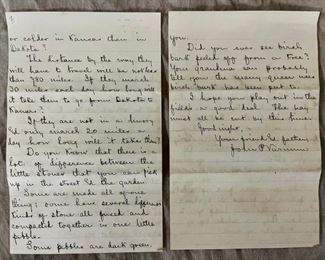 2
or colder in Kansas than in
Dakota?
The distance by the way they
will have to travel will be not less
than 780 miles. If they march
30 miles each day how long will
it take them to go from Dakota to
Kansas?
If they are not in a hurry
& only march 20 miles a
day how long will it take them?
Do you know that there is a
lot of difference between the
little stones that you can pick
up in the street & the garden.
Some are made all of one
thing; some have several different
kinds of stone all fused and
compacted together in one little
pebble.
Some pebbles are dark green,
you.
Did you ever see birch
bark peeled off from a tree?
Your grandma can probably
tell you the many queer uses
birch bark has been put to.
I hope you play out in the
fields a good deal. The hay
must all be cut by this time.
Good night,
Your friend &
John P